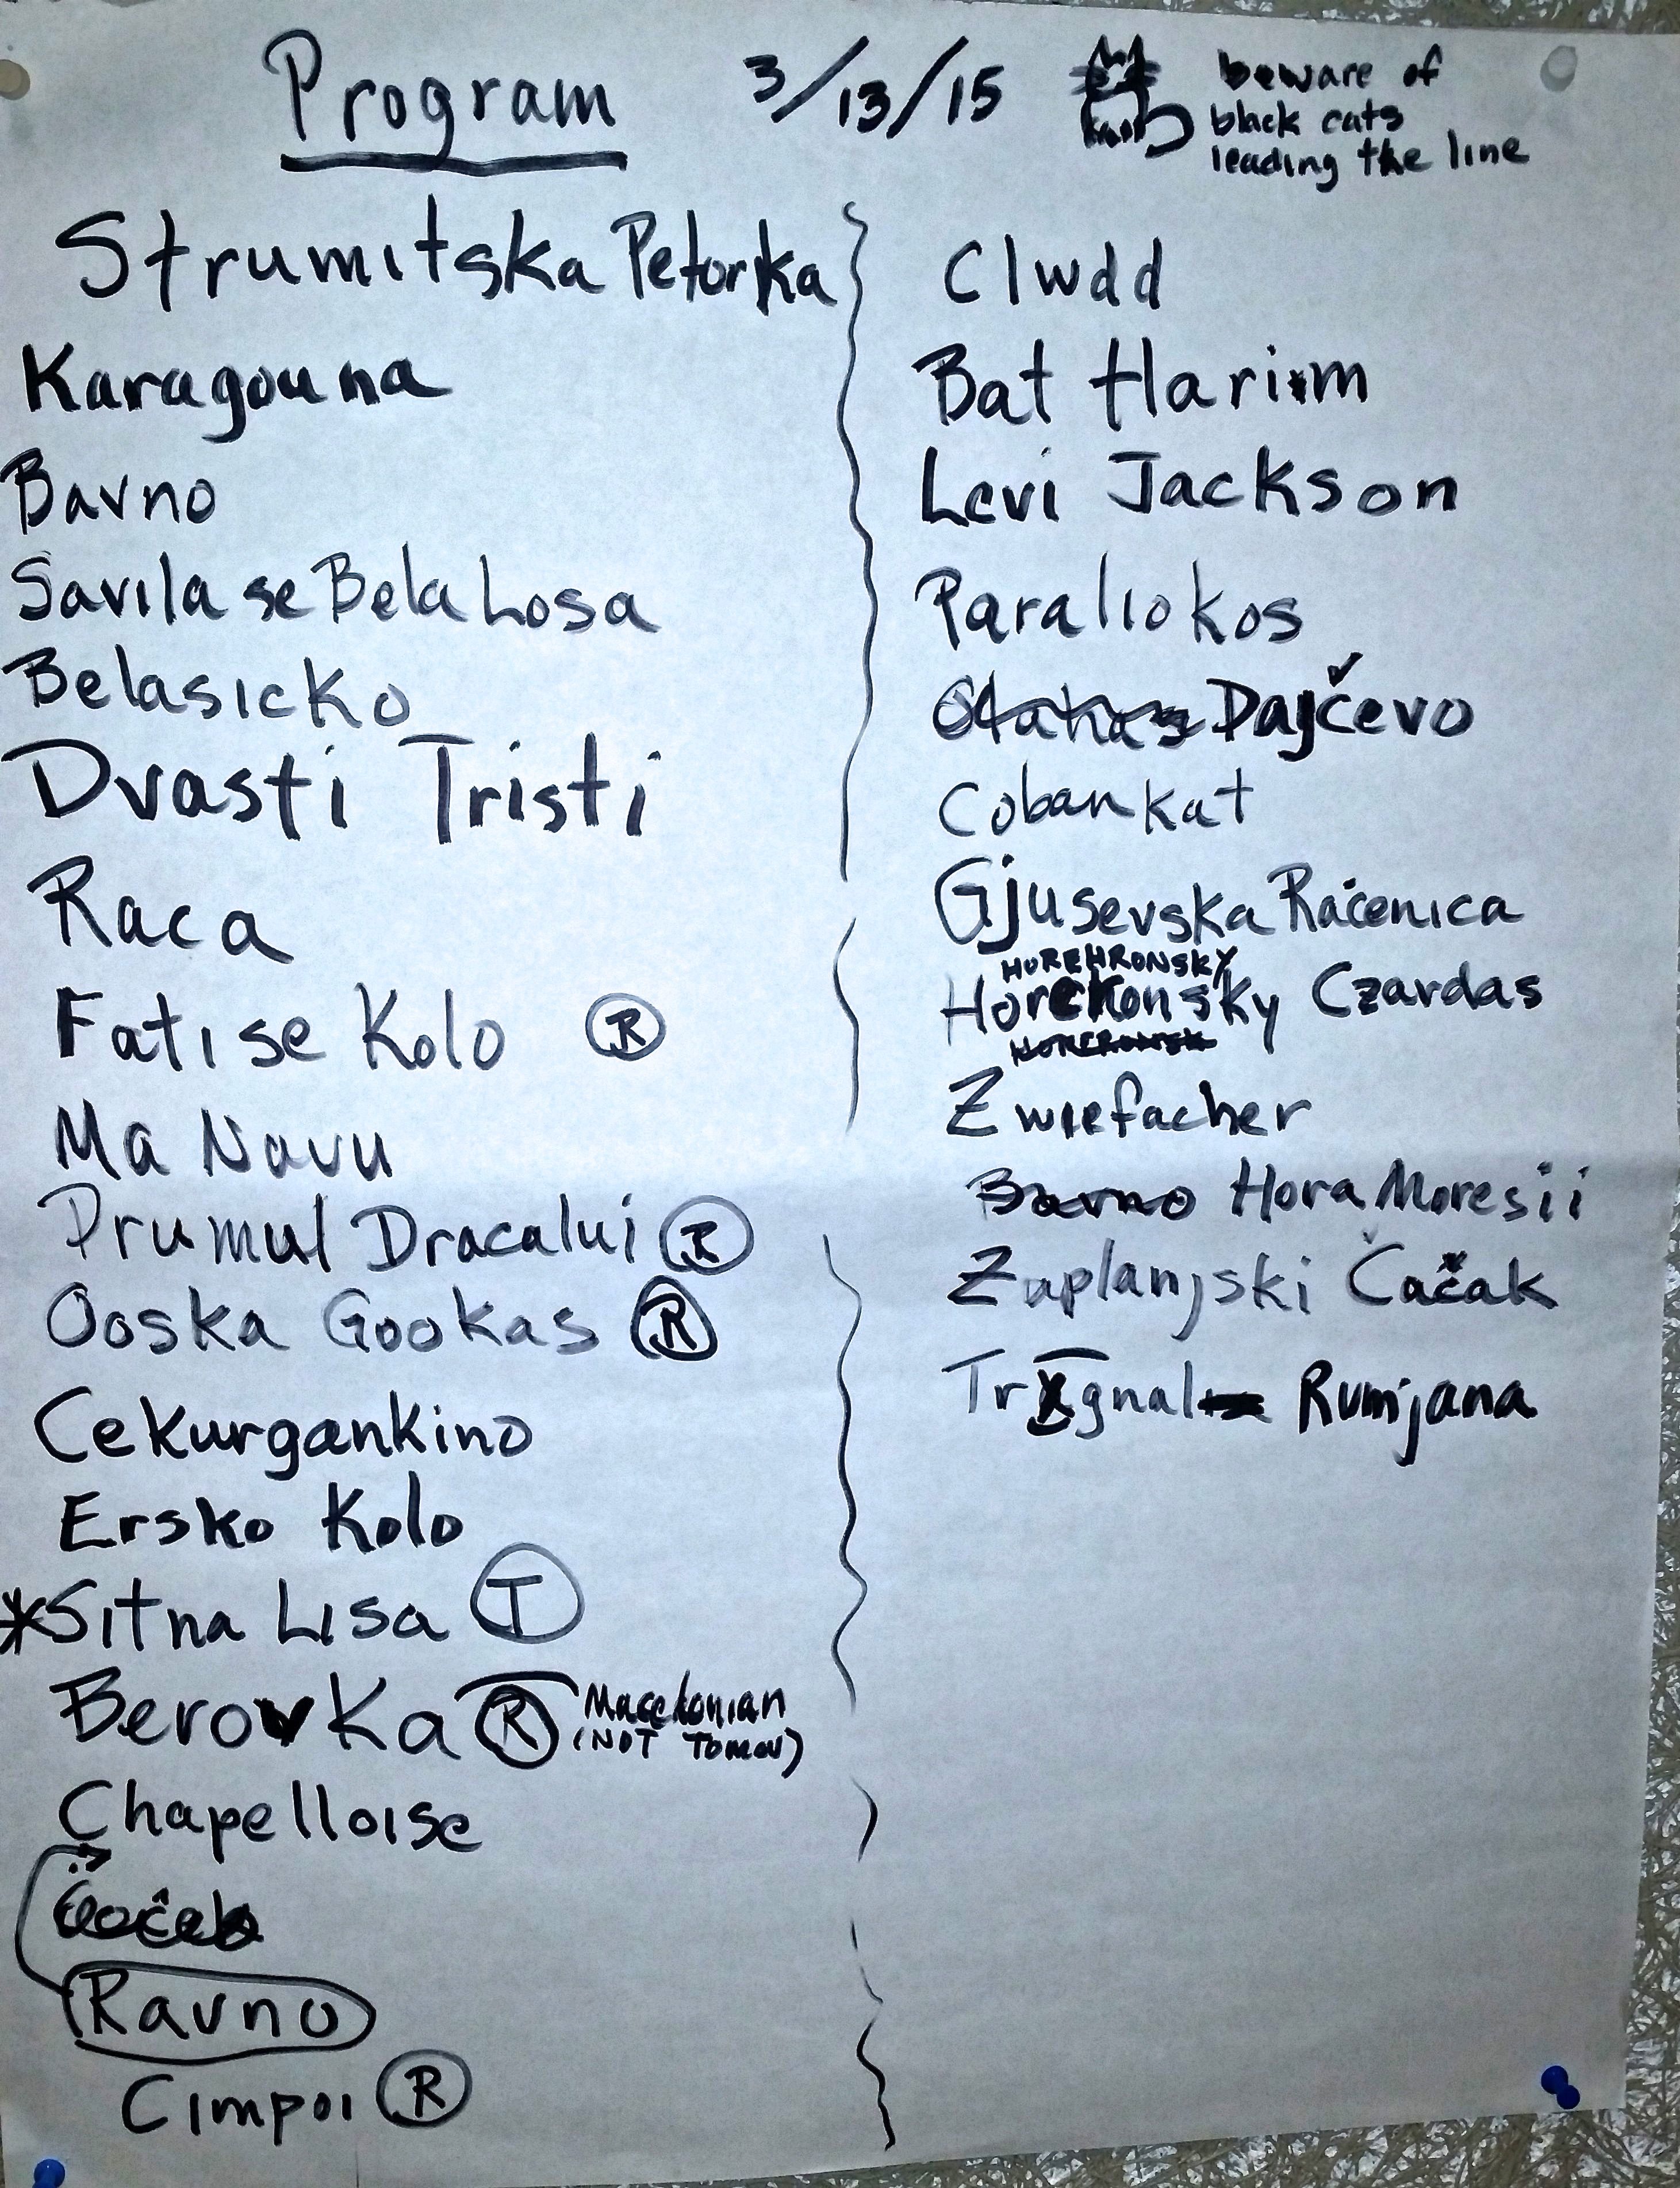 Program 3/13/15
beware of
black cats
leading the line
Strumitska Petorka
Karagouna
Bavno
Savila se Bela Losa
Belasicko
Dvasti Tristi
Raca
Fatise Kolo Ⓡ
Ma Navu
Drumul Dracalui Ⓡ
Ooska Gookas Ⓡ
Cekurgankino
Ersko Kolo
*Sitna Lisa Ⓣ
Berovka Ⓡ Macedonian
(NOT Tomov)
Chapelloise
Ravno
Cimpoi Ⓡ
Clwdd
Bat Harim
Levi Jackson
Paraliokos
Dajčevo
Coban kat
Gjusevska Račenica
HOREHRONSKY
Horehronsky Czardas
Zwiefacher
Bavno Hora Moresii
Zaplanjski Čačak
Rumjana